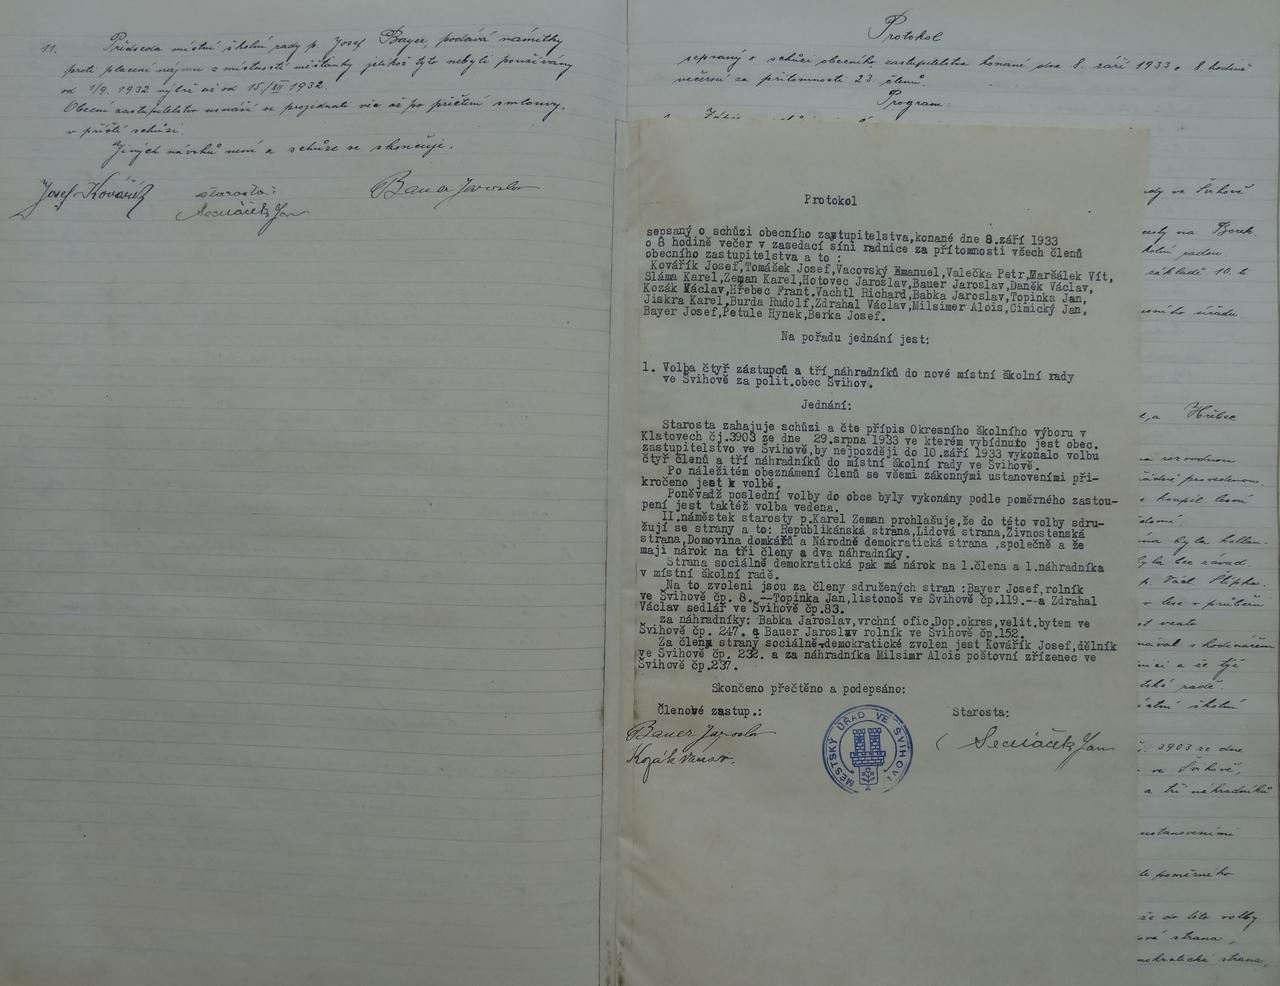 11. Předseda místní školní rady p. Josef Bayer, podává námitky
proti placení nájmu z místností měšťanky jelikož tyto nebyli používány
od 1/9. 1932 nýbrž až od 15/XII 1932.
Obecní zastupitelstvo usnáší se projednati věc až po přečtení smlouvy.
v příští schůzi.
Jiných návrhů není a schůze se skončuje.
Josef Kovářík starosta: Bauer Jaroslav
Sedláček Jan
Protokol
sepsaný o schůzi obecního zastupitelstva konané dne 8. září 1933 o 8. hodině
večerní za přítomnosti 23. členů.
Program:
Protokol
sepsaný o schůzi obecního zastupitelstva,konané dne 8.září 1933
o 8 hodině večer v zasedací síni radnice za přítomnosti všech členů
obecního zastupitelstva a to :
Kovářík Josef,Tomášek Josef,Vacovský Emanuel,Valečka Petr,Maršálek Vít,
Sláma Karel,Zeman Karel,Hotovec Jaroslav,Bauer Jaroslav,Daněk Václav,
Kozák Václav,Hřebec Frant.Vachtl Richard,Babka Jaroslav,Topinka Jan,
Jiskra Karel,Burda Rudolf,Zdrahal Václav,Milsimer Alois,Cimický Jan,
Bayer Josef,Petule Hynek,Berka Josef.
Na pořadu jednání jest:
1. Volba čtyř zástupců a tří náhradníků do nové místní školní rady
ve Švihově za polit.obec Švihov.
Jednání:
Starosta zahajuje schůzi a čte přípis Okresního školního výboru v
Klatovech čj.3903 ze dne 29.srpna 1933 ve kterém vybídnuto jest obec.
zastupitelstvo ve Švihově,by nejpozději do 10.září 1933 vykonalo volbu
čtyř členů a tří náhradníků do místní školní rady ve Švihově.
Po náležitém obeznámení členů se všemi zákonnými ustanoveními při-
kročeno jest k volbě.
Poněvadž poslední volby do obce byly vykonány podle poměrného zastou-
pení jest taktéž volba vedena.
II.náměstek starosty p.Karel Zeman prohlašuje,že do této volby sdru-
žují se strany a to: Republikánská strana,Lidová strana,Živnostenská
strana,Domovina domkářů a Národně demokratická strana ,společně a že
mají nárok na tři členy a dva náhradníky.
Strana sociálně demokratická pak má nárok na 1.člena a 1.náhradníka
v místní školní radě.
Na to zvoleni jsou za členy sdružených stran :Bayer Josef,rolník
ve Švihově čp. 8. --Topinka Jan,listonoš ve Švihově čp.119.--a Zdrahal
Václav sedlář ve Švihově čp.83.
za náhradníky: Babka Jaroslav,vrchní ofic.Dop.okres,velit.bytem ve
Švihově čp. 247. a Bauer Jaroslav rolník ve Švihově čp.152.
Za členy strany sociálně-demokratické zvolen jest Kovářík Josef,dělník
ve Švihově čp. 232. a za náhradníka Milsimr Alois poštovní zřízenec ve
Švihově čp.237.
Skončeno přečteno a podepsáno:
Členové zastup.: Starosta:
Bauer Jaroslav Sedláček Jan
Kozák Václav.
MĚSTSKÝ ÚŘAD VE ŠVIHOVĚ
ve Švihově
cesty na Borek.
školní radou.
základě 10. t
úřadu
a Hřebec
rozvodnou
provedenou.
koupil lesní
byla
byla bez závad.
p. Václ.
v lese v průběhu
s hodinářem
a že týž
školní
3903 ze dne
ve Švihově,
a tří náhradníků
ustanoveními
poměrného
že do této volby
strana,
demokratická strana,